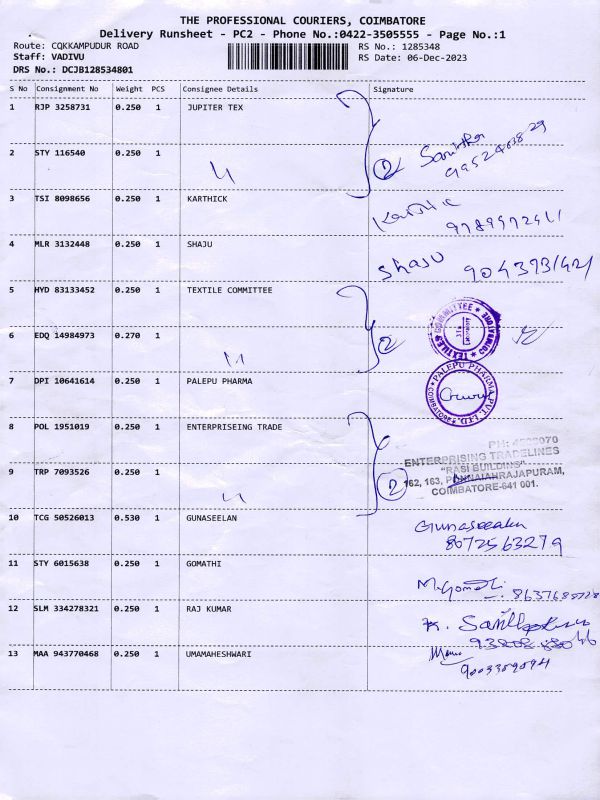 THE PROFESSIONAL COURIERS, COIMBATORE
Delivery Runsheet - PC2 - Phone No.:0422-3505555 - Page No.:1
Route: CQKKAMPUDUR ROAD RS No.: 1285348
Staff: VADIVU RS Date: 06-Dec-2023
DRS No.: DCJB128534801
S No Consignment No Weight PCS Consignee Details Signature
1 RJP 3258731 0.250 1 JUPITER TEX
2 STY 116540 0.250 1 2
3 TSI 8098656 0.250 1 KARTHICK
4 MLR 3132448 0.250 1 SHAJU Shaju
5 HYD 83133452 0.250 1 TEXTILE COMMITTEE
6 EDQ 14984973 0.270 1 2 TEXTILES COMMITTEE COIMBATORE
7 DPI 10641614 0.250 1 PALEPU PHARMA PALEPU PHARMA PVT. LTD. COIMBATORE
8 POL 1951019 0.250 1 ENTERPRISEING TRADE
ENTERPRISING TRADELINES
"RASI BUILDING"
9 TRP 7093526 0.250 1 2 162, 163, PONNAIAHRAJAPURAM,
COIMBATORE-641 001.
10 TCG 50526013 0.530 1 GUNASEELAN Gunaseelan
8072563279
11 STY 6015638 0.250 1 GOMATHI M.Gomathi
12 SLM 334278321 0.250 1 RAJ KUMAR
13 MAA 943770468 0.250 1 UMAMAHESHWARI